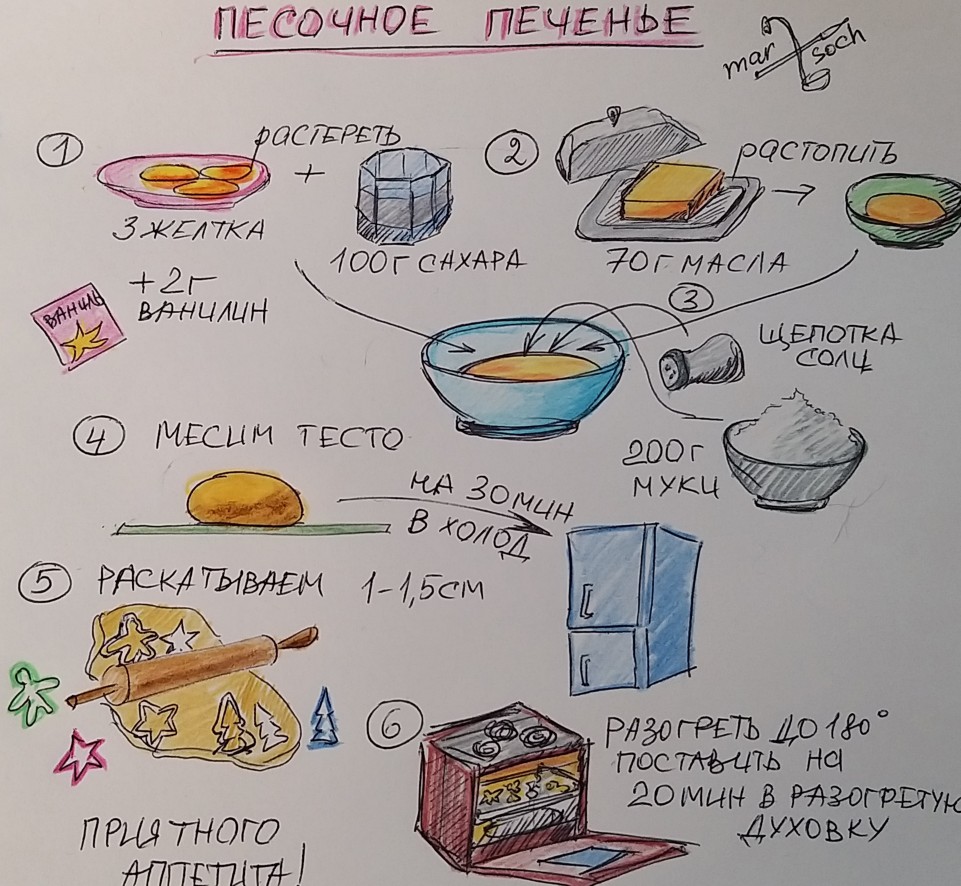 ПЕСОЧНОЕ ПЕЧЕНЬЕ
mar soch
1
РАСТЕРЕТЬ
+
3 ЖЕЛТКА
100Г САХАРА
+2Г
ВАНИЛИН
ВАНИЛЬ
2
РАСТОПИТЬ
70Г МАСЛА
3
ЩЕПОТКА
СОЛИ
200Г
МУКИ
4 МЕСИМ ТЕСТО
НА 30МИН
В ХОЛОД
5 РАСКАТЫВАЕМ 1-1,5СМ
6
РАЗОГРЕТЬ ДО 180°
ПОСТАВИТЬ НА
20МИН В РАЗОГРЕТУЮ
ДУХОВКУ
ПРИЯТНОГО
АППЕТИТА!